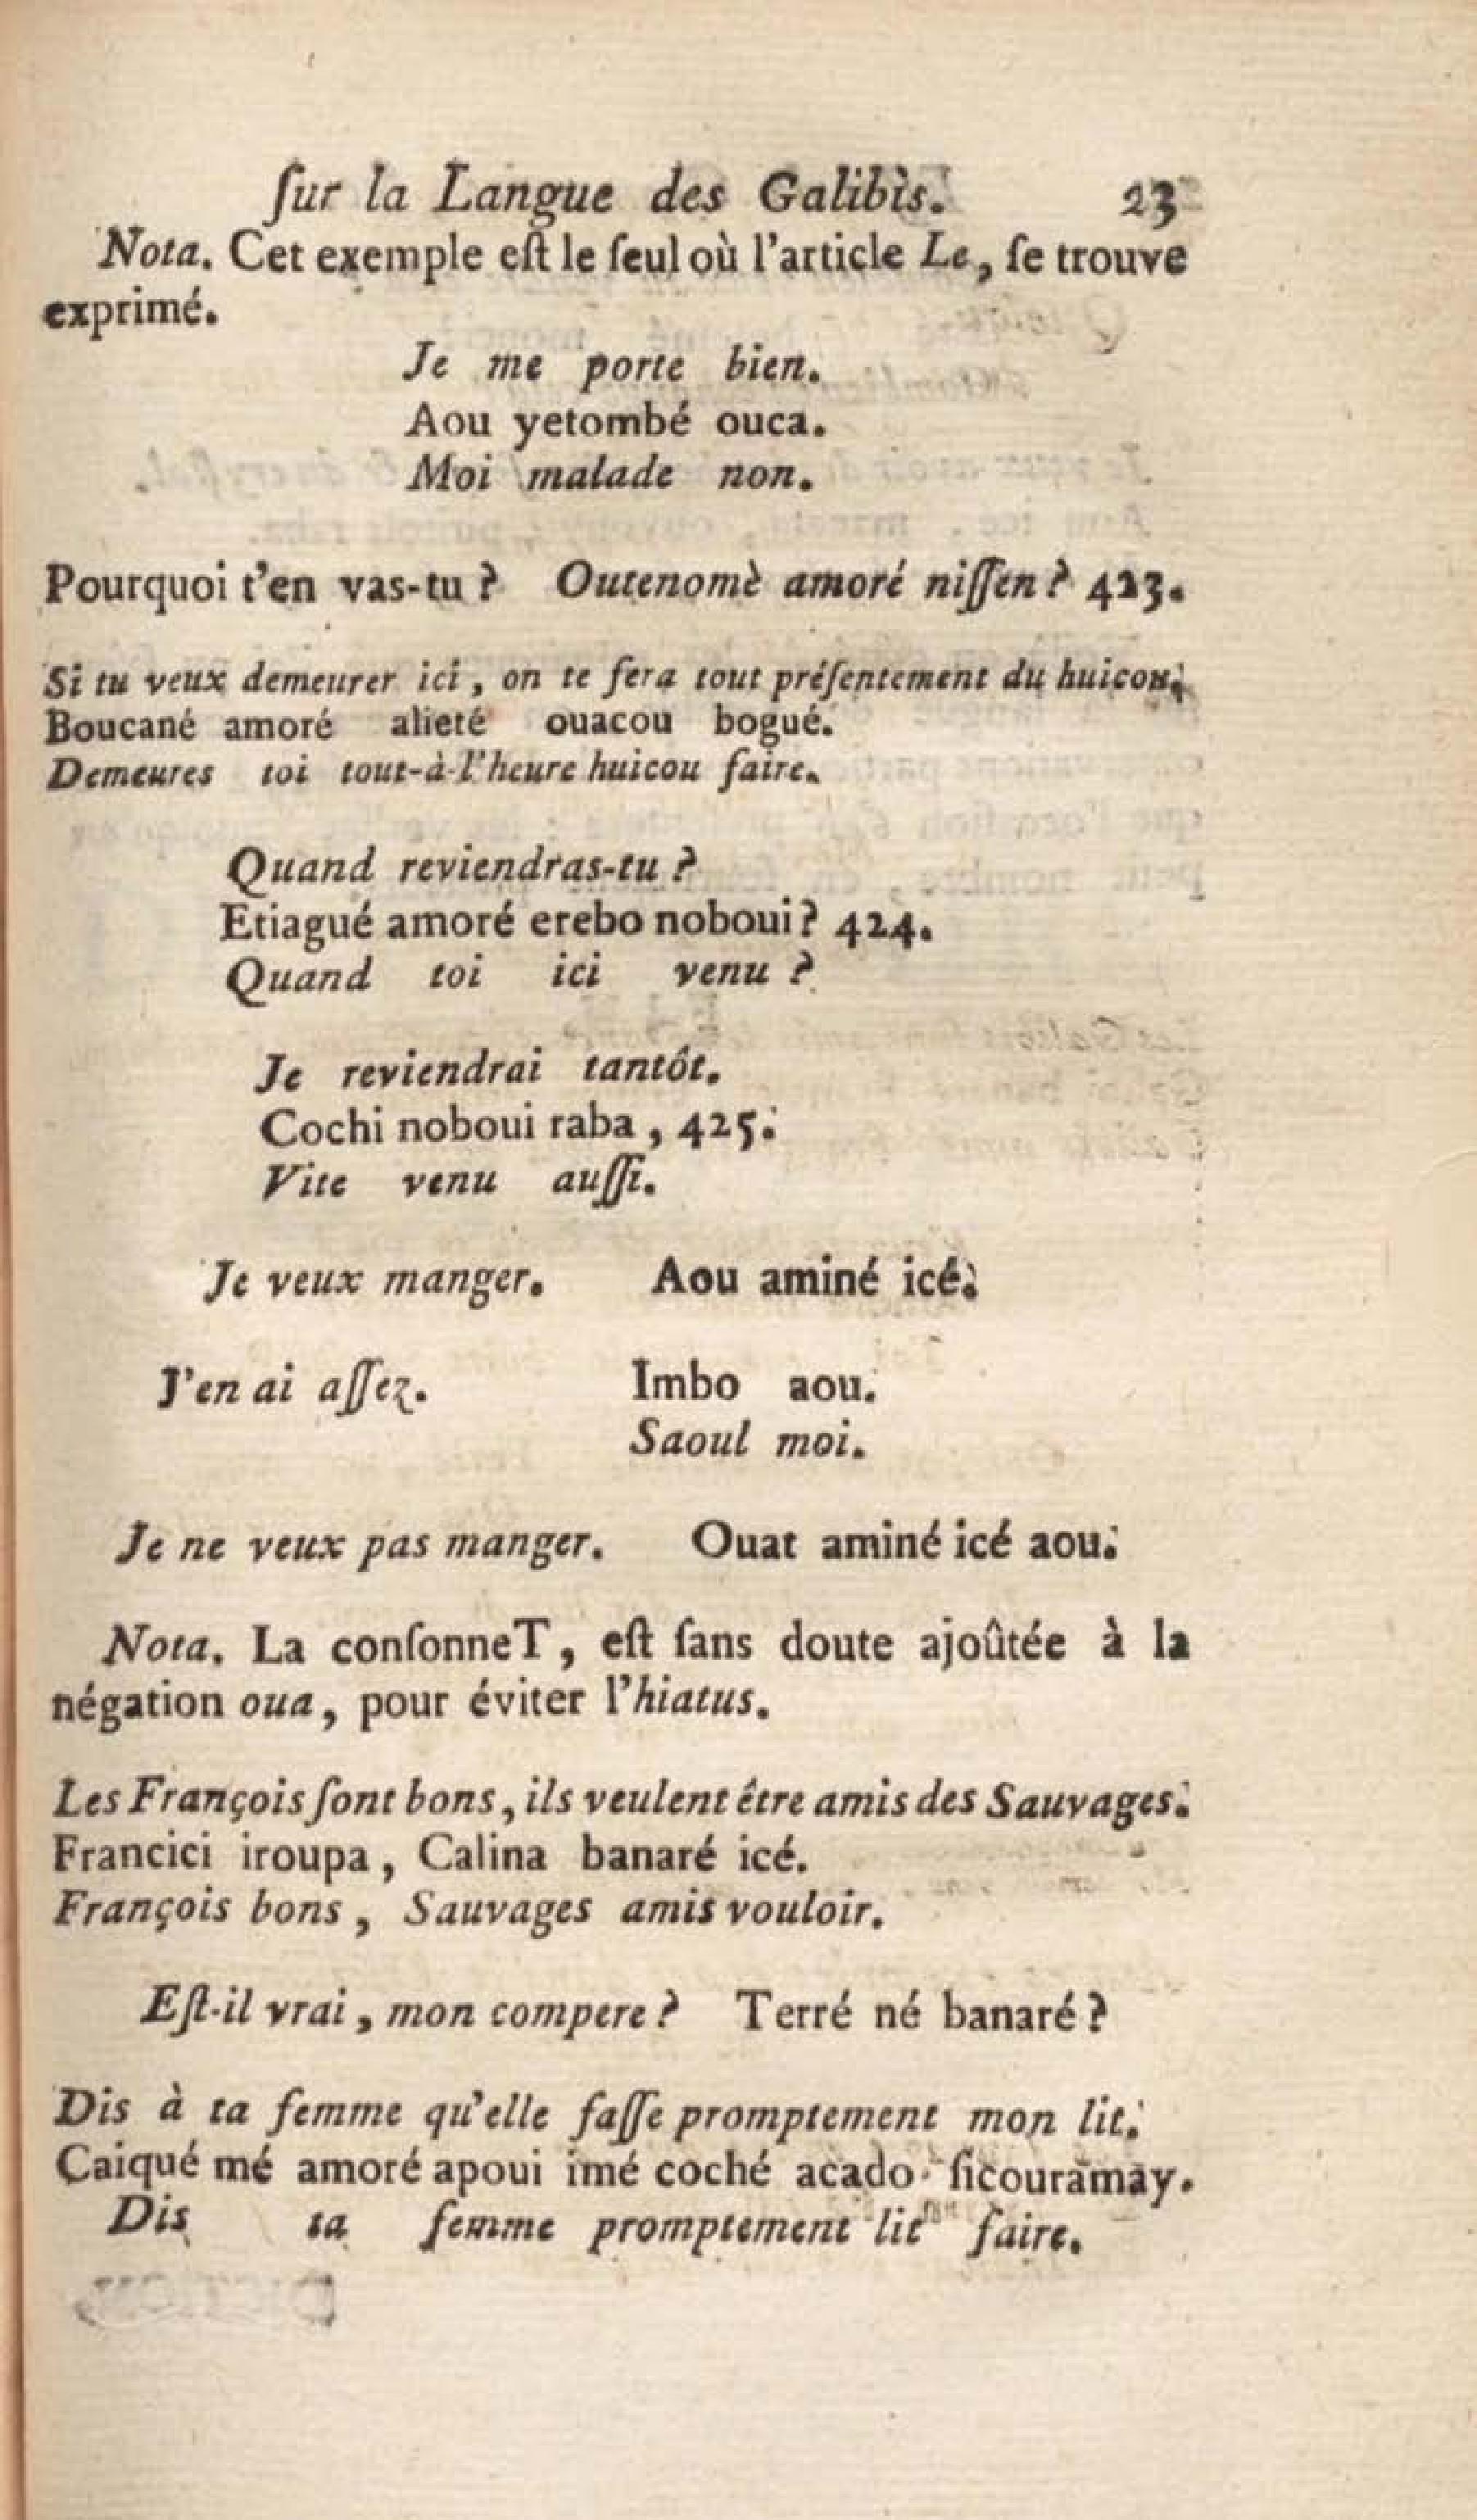 ſur la Langue des Galibis. 23
Nota. Cet exemple eſt le ſeul où l'article Le, ſe trouve
exprimé.
Je me porte bien.
Aou yetombé ouca.
Moi malade non.
Pourquoi t'en vas-tu ? Outenomè amoré niſſen ? 423.
Si tu veux demeurer ici, on te fera tout préſentement du huicou.
Boucané amoré alieté ouacou bogué.
Demeures toi tout-à-l'heure huicou faire.
Quand reviendras-tu ?
Etiagué amoré erebo noboui ? 424.
Quand toi ici venu ?
Je reviendrai tantôt.
Cochi noboui raba, 425.
Vite venu auſſi.
Je veux manger. Aou aminé icé.
J'en ai aſſez. Imbo aou.
Saoul moi.
Je ne veux pas manger. Ouat aminé icé aou.
Nota. La conſonne T, eſt ſans doute ajoûtée à la
négation oua, pour éviter l'hiatus.
Les François ſont bons, ils veulent être amis des Sauvages.
Francici iroupa, Calina banaré icé.
François bons, Sauvages amis vouloir.
Eſt-il vrai, mon compere ? Terré né banaré ?
Dis à ta femme qu'elle faſſe promptement mon lit.
Caiqué mé amoré apoui imé coché acado ſicouramay.
Dis ta femme promptement lit faire.